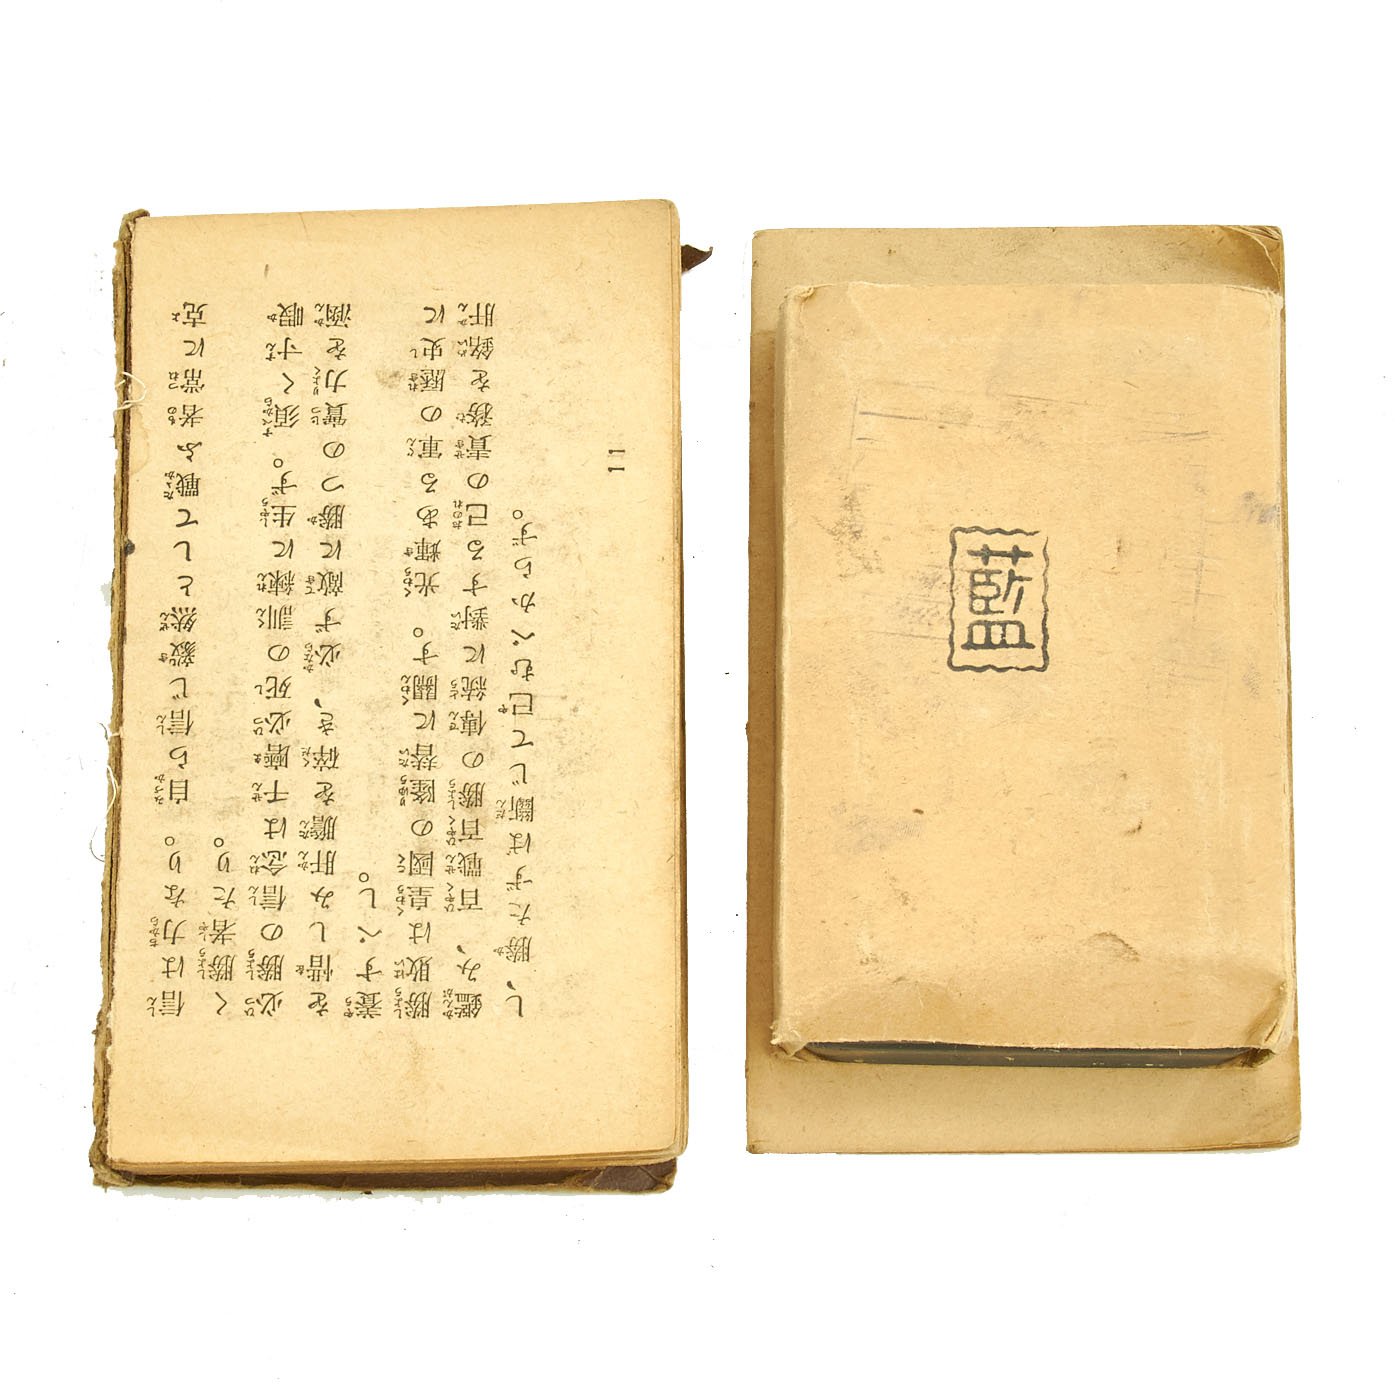 信は力なり。自ら信じ毅然として戰ふ者常に克
く勝者たり。
必勝の信念は千磨必死の訓練に生ず。須く寸暇
を惜しみ肝膽を碎き、必ず敵に勝つの實力を涵
養すべし。
勝敗は皇國の隆替に關す。光輝ある軍の歷史に
鑑み、百戰百勝の傳統に對する己の責務を銘肝
し、勝たずば斷じて已むべからず。
11
藍